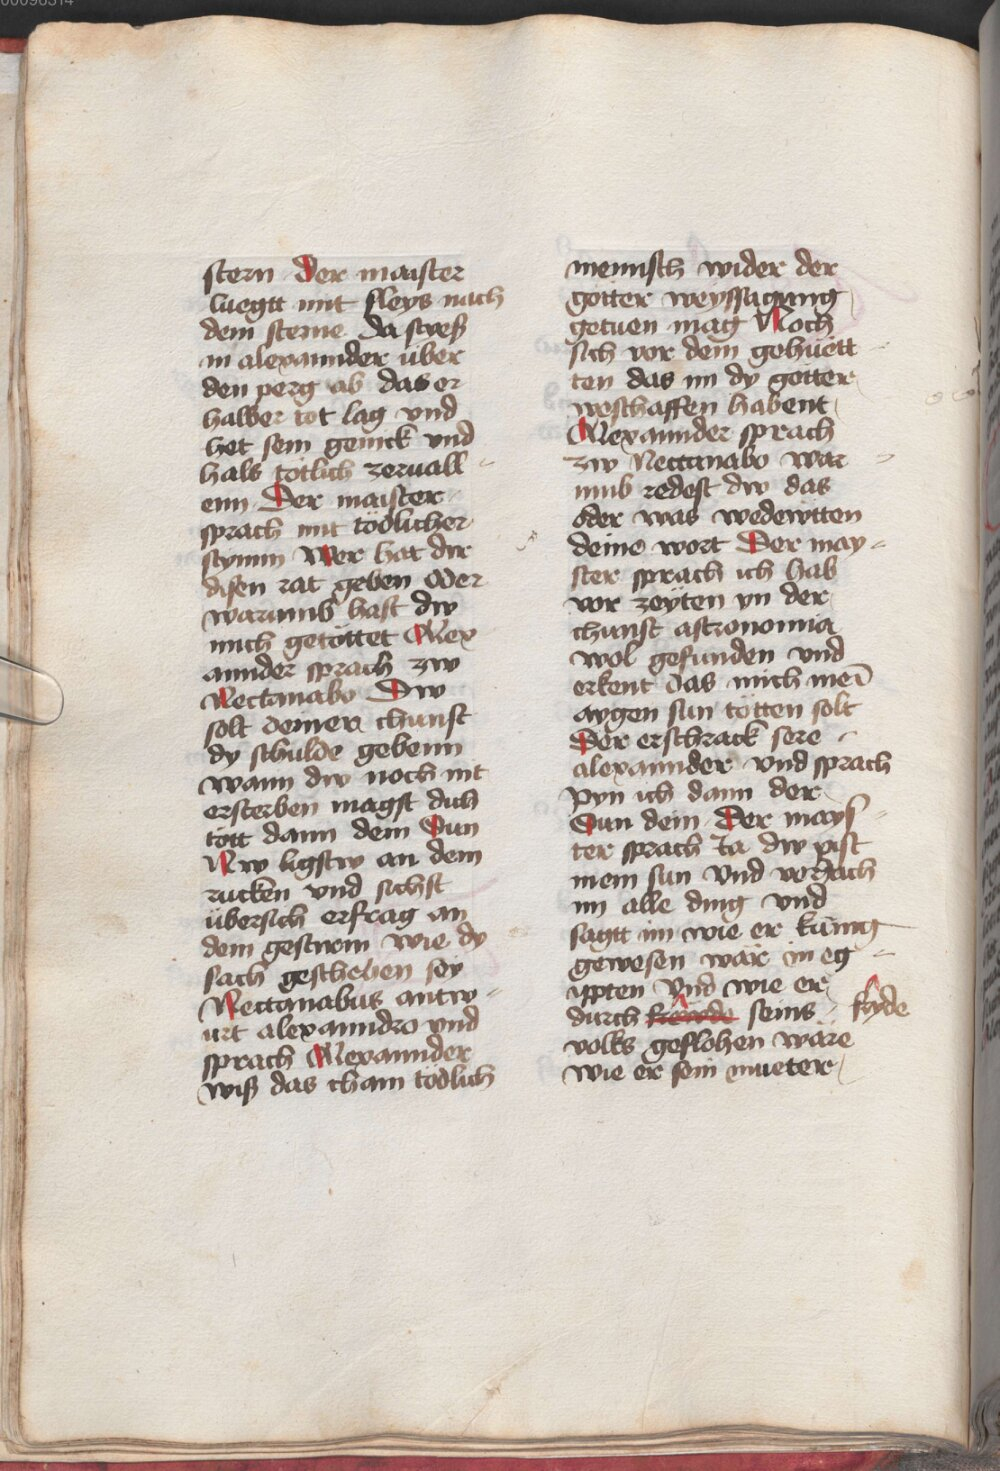 stern Der maister
luegtt mit fleys nach
dem sterne Da stvess
in alexannder über
den perg ab das er
halber tot lag vnd
het sein genick vnd
hals tötlich zeruall-
enn Der maister
sprach mit tödlicher
stymm Wer hat dir
disen rat geben oder
warumb hast dw
mich getöttet Alex
annder sprach zw
Nectanabo Dw
solt deiner chunst
dy schulde gebenn
wann dw noch nit
ersterben magst dich
tött dann dein Sun
Nw ligstw an dem
rucken vnd sichst
übersich erfrag an
dem gestirn wie dy
sach geschehen sey
Nectanabus antw-
urt alexanndro vnd
sprach Alexannder
wiß das cham tödlich
mennisch wider der
götter weyssagung
getuen mag Noch
sich vor dem gehüett
ten das im dy götter
weschaffen habent
Alexannder sprach
zw Nectanabo war-
umb redest dw das
oder was wedewtten
deine wort Der may-
ster sprach ich hab
vor zeyten yn der
chunst astronomia
wol gefunden vnd
erkent das mich mei
aygen sun tötten solt
Der erschrack sere
alexannder vnd sprach
pyn ich dann der
Sun dein Der mays-
ter sprach Ja dw pist
mein sun Vnd veriach
im alle ding vnd
sagtt im wie er künig
gewesen wär in eg-
ypten Vnd wie er
durch seins fryde
volks geflohen wäre
wie er sein mueter